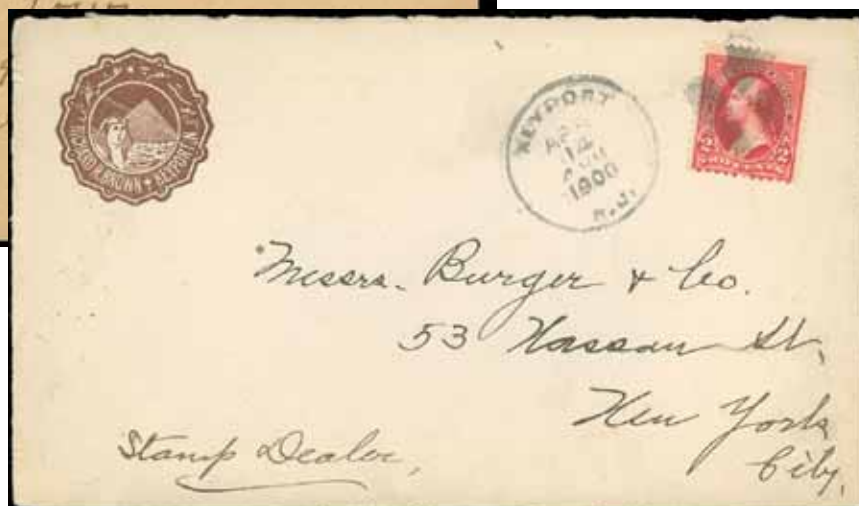 RICHARD P. BROWN + KEYPORT N.
KEYPORT
APR
14
1900
N.J.
2 2
Messrs. Burger & Co.
53 Nassau St,
New York
City,
Stamp Dealer,